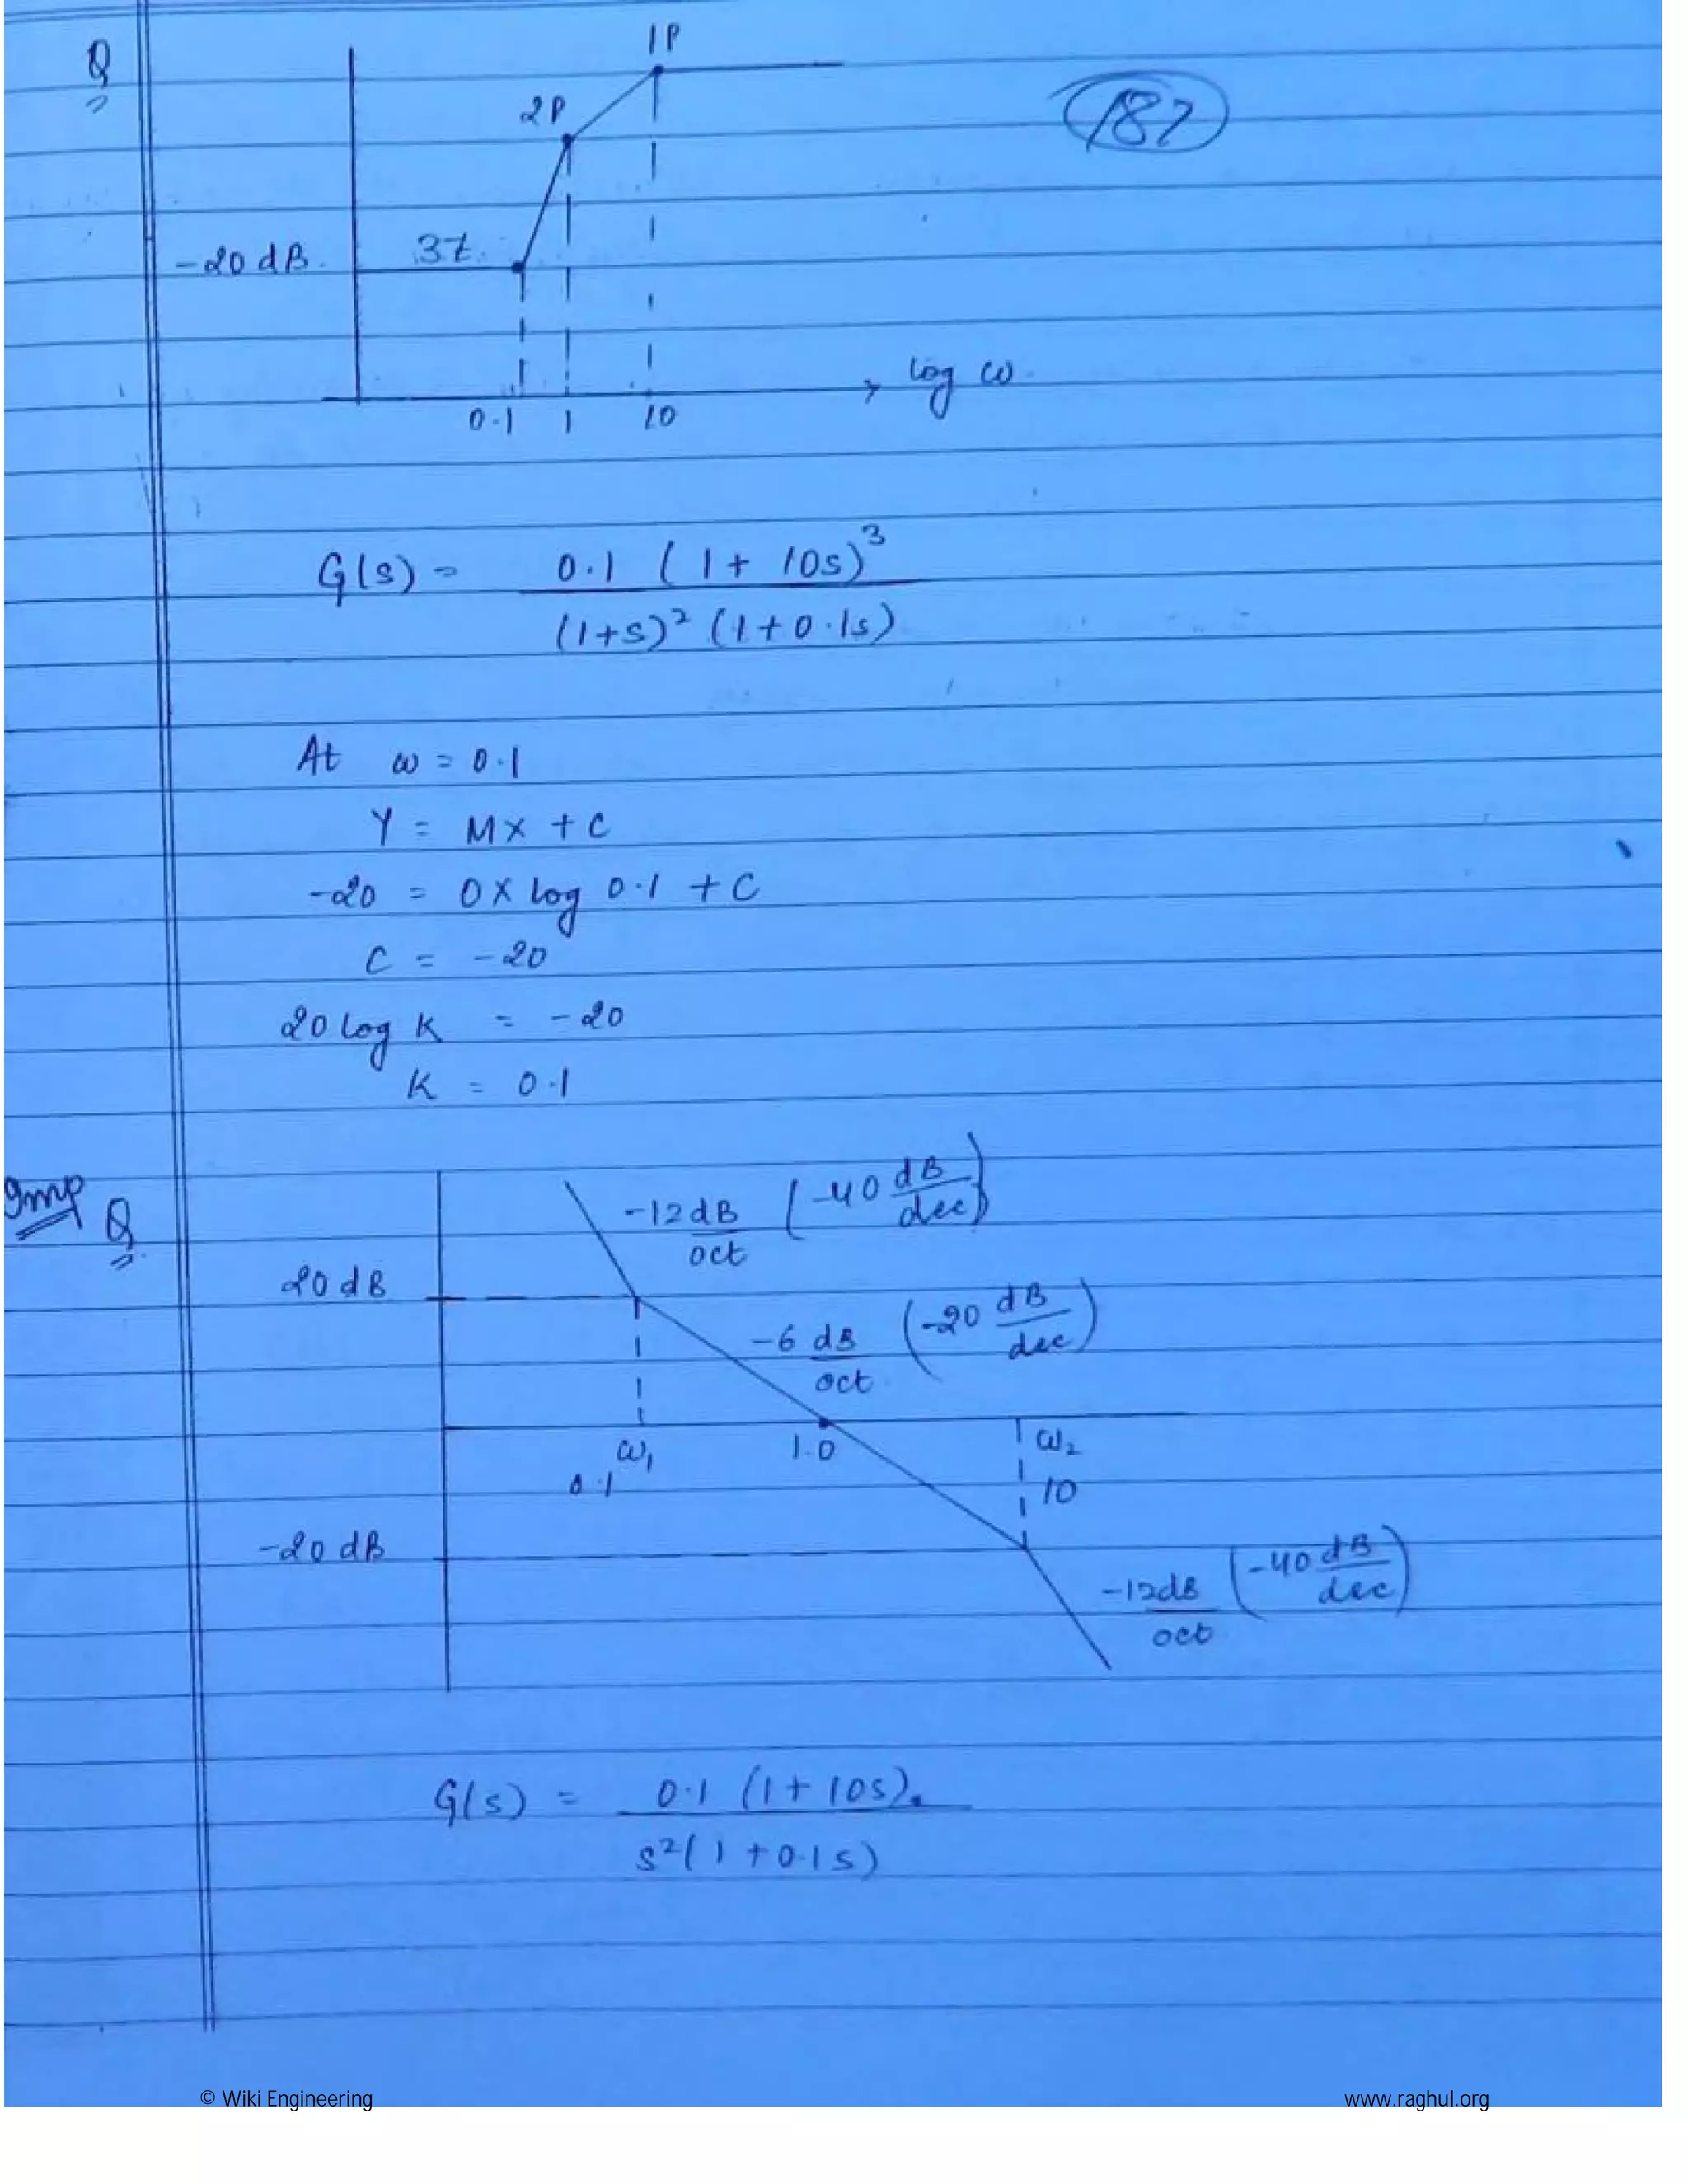 Q
1P
187
2P
-20 dB
3Z
log ω
0.1 1 10
G(s) = 0.1 (1 + 10s)³
(1+s)² (1+0.1s)
At ω = 0.1
Y = MX + C
-20 = 0 X log 0.1 + C
C = -20
20 log K = -20
K = 0.1
Imp Q
-12 dB/oct (-40 dB/dec)
20 dB
-6 dB/oct (-20 dB/dec)
ω₁ 1.0 ω₂
0.1 10
-20 dB
-12dB/oct (-40 dB/dec)
G(s) = 0.1 (1 + 10s).
s²(1 + 0.1s)
© Wiki Engineering www.raghul.org